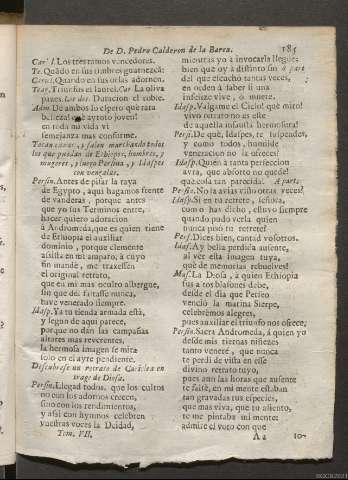 De D. Pedro Calderon de la Barca. 185
Car. I. Los tres ramos vencedores.
Te. Quãdo en sus timbres
Ceres. Quando en sus orlas adornen.
Triunfos el laurel. Car. La oliva
pazes. Los dos. Duracion el roble.
Adm. De ambos lo espero
belleza! joven!
en toda mi vida vi
semejança mas conforme.
Tocan caxas, y salen marchando todos
los que puedan de Ethiopes, hombres, y
mugeres, y luego Persina, y Idaspes
con vengalas.
Persin. Antes de pisar la raya
de Egypto, aqui hagamos frente
de vanderas, porque antes
que yo sus Terminos entre,
hazer quiero adoracion
à Andromeda, que es quien tiene
de Ethiopia el auxiliar
dominio, porque clemente
assista en mi amparo, à cuyo
fin mandè, me traxessen
el original retrato,
que en mi mas oculto albergue,
sin que del faltasse nunca,
tuve venerado siempre.
Idasp. Ya tu tienda armada està,
y luego de aqui parece,
porque no dàn las campañas
altares mas reverentes,
la hermosa imagen se mire
solo en el ayre pendiente.
Descubrese un retrato de Cariclea en
trage de Diosa.
Persin. Llegad todos, que los cultos
no con los adornos crecen,
sino con los rendimientos,
y assi con hymnos celebren
vuestras vozes la Deidad,
Tom. VII.
mientras yo à invocarla llegue:
bien que oy à distinto fin à part
del que escuchò tantas vezes,
en orden à saber si una
infelize vive, ò muere.
Idasp. Valgame el Cielo! què miro!
vivo retrato no es este
de aquella infausta hermosura!
Persi. De què, Idaspes, te suspendes,
y como todos, humilde
veneracion no la ofreces!
Idasp. Quien à tanta perfeccion
avrà, que absorto no quede!
què cosa tan parecida! A parte.
Persin. No la avias visto otras vezes?
Idasp. Si en tu retrete, señora,
como has dicho, estuvo siempre
quando pudo verla quien
nunca pisò tu retrete?
Pers. Dizes bien, cantad vosotros.
Idasp. Ay bella perdida ausente,
al ver esta imagen tuya,
què de memorias rebuelves!
Mus. La Diosa, à quien Ethiopia
sus dos blasones debe,
desde el dia que Perseo
venciò la marina Sierpe,
celebrèmos alegres,
pues auxiliar el triunfo nos ofrece.
Persin. Sacra Andromeda, à quien yo
desde mis tiernas niñezes
tanto venerè, que nunca
te perdi de vista en esse
divino retrato tuyo,
pues aun las horas que ausente
te falte, en mi mente estaban
tan gravadas tus especies,
que mas viva, que tu aliento,
te me pintaba mi mente:
admite el voto con que
Aa